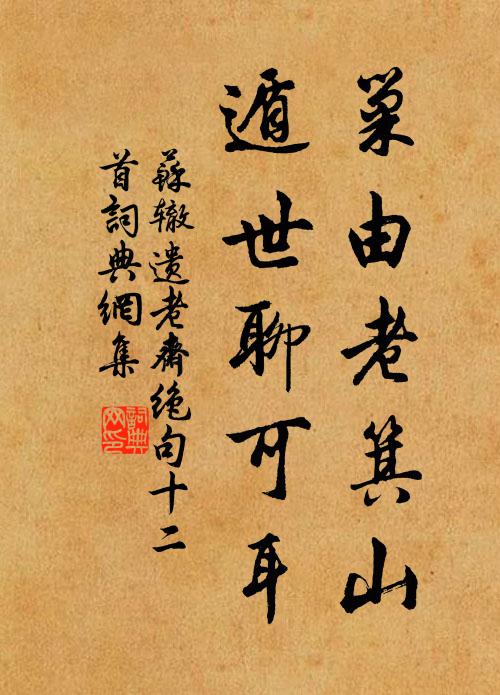 巢由老箕山
遁世聊可耳
蘇辙遺老齋絕句十二
首詞典網集
詞典
网印